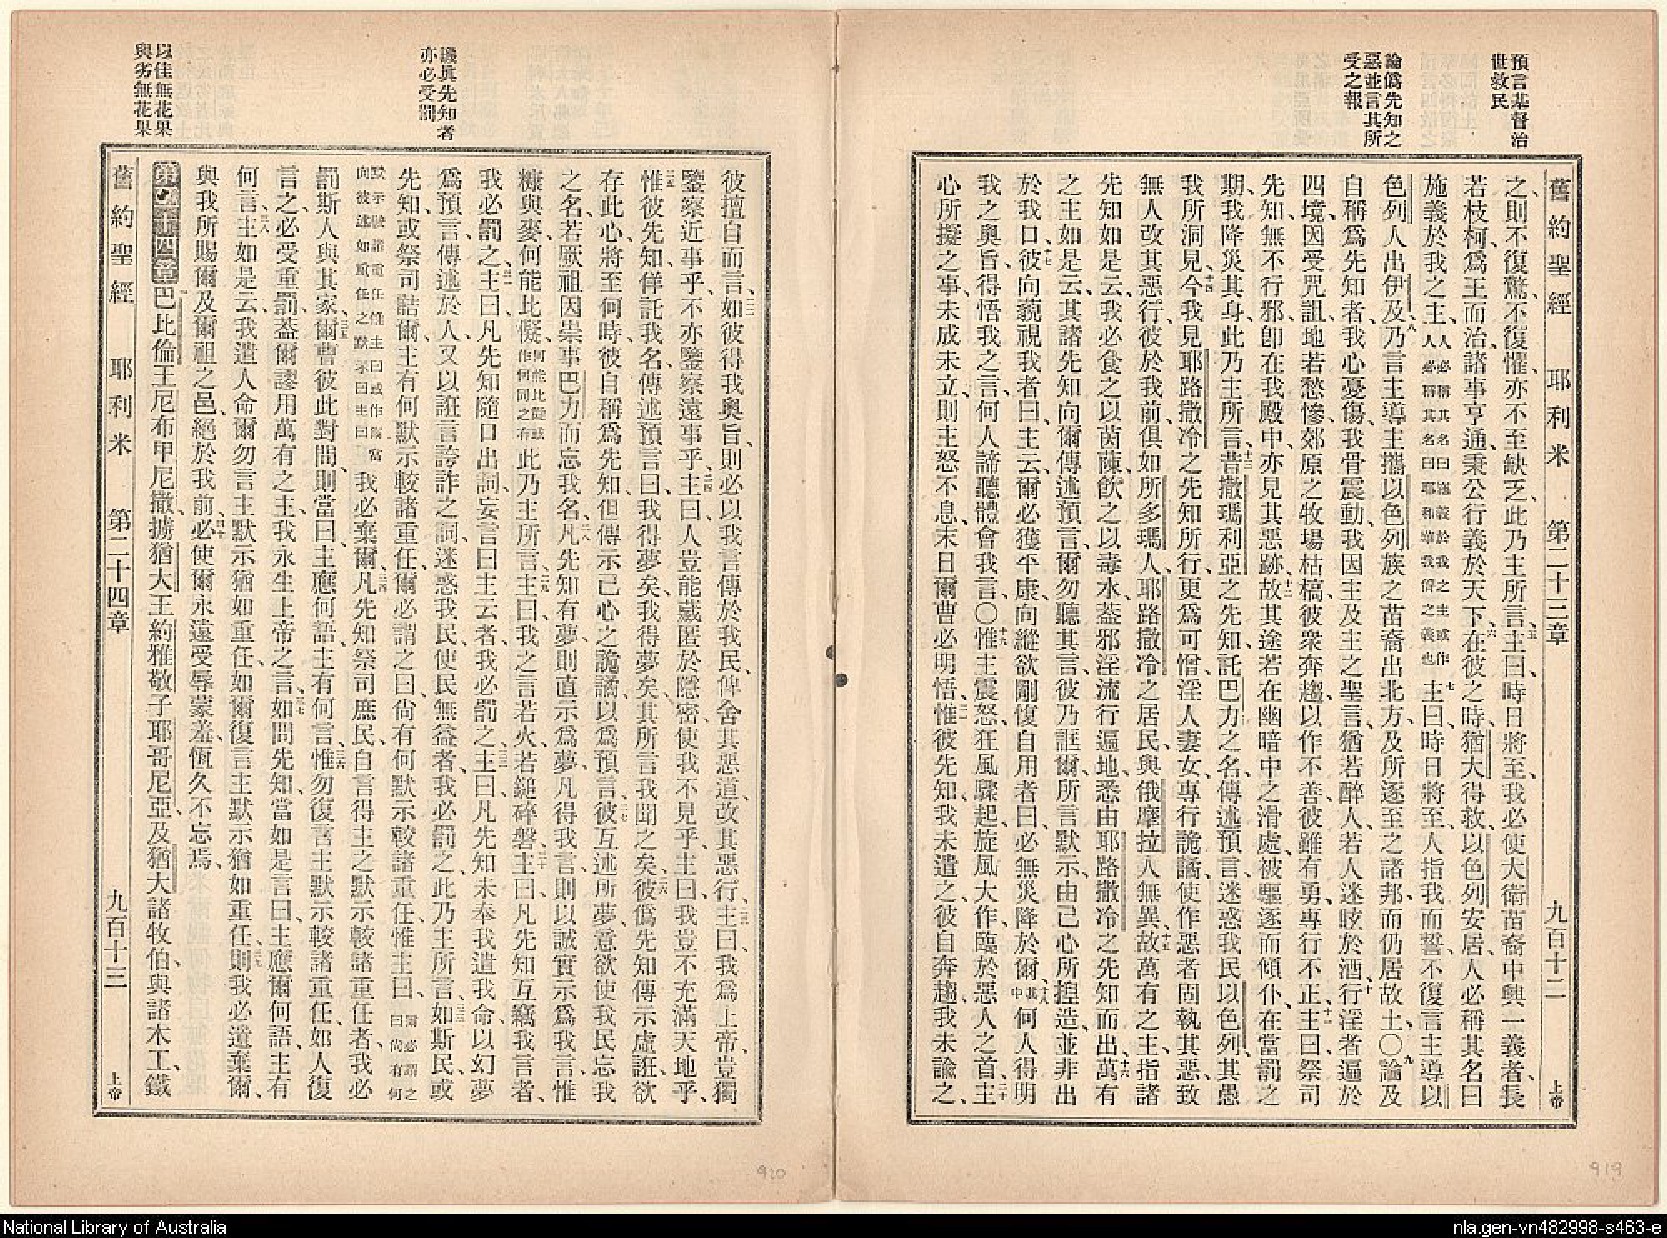 預言基督治
世救民
論僞先知之
惡並言其所
受之報
舊約聖經 耶利米 第二十三章 九百十二 上帝
之、則不復驚、不復懼、亦不至缺乏、此乃主所言、五主曰、時日將至、我必使大衛苗裔中興一義者、長
若枝柯、爲王而治、諸事亨通、秉公行義於天下、六在彼之時、猶大得救、以色列安居、人必稱其名曰
施義於我之主、人必稱其名曰施義於我之主或作人必稱其名曰耶和華我儕之義也七主曰、時日將至、人指我而誓、不復言主導以
色列人出伊及、八乃言主導主攜以色列族之苗裔、出北方、及所逐至之諸邦、而仍居故土、〇九論及
自稱爲先知者、我心憂傷、我骨震動、我因主及主之聖言、猶若醉人、若人迷眩於酒、十行淫者遍於
四境、因受咒詛、地若愁慘、郊原之牧場枯槁、彼衆奔趨以作不善、彼雖有勇、專行不正、十一主曰、祭司
先知、無不行邪、卽在我殿中、亦見其惡跡、十二故其途若在幽暗中之滑處、被驅逐而傾仆、在當罰之
期、我降災其身、此乃主所言、十三昔撒瑪利亞之先知、託巴力之名、傳述預言、迷惑我民以色列、其愚
我所洞見、十四今我見耶路撒冷之先知所行、更爲可憎、淫人妻女、專行詭譎、使作惡者固執其惡、致
無人改其惡行、彼於我前、俱如所多瑪人、耶路撒冷之居民、與俄摩拉人無異、十五故萬有之主、指諸
先知如是云、我必食之以茵蔯、飲之以毒水、蓋邪淫流行遍地、悉由耶路撒冷之先知而出、十六萬有
之主如是云、其諸先知向爾傳述預言、爾勿聽其言、彼乃誑爾、所言默示、由己心所揑造、並非出
於我口、十七彼向藐視我者曰、主云、爾必獲平康、向縱欲剛愎自用者曰、必無災降於爾、十八其中何人得明
我之奧旨、得悟我之言、何人諦聽體會我言、〇十九惟主震怒、狂風驟起、旋風大作、臨於惡人之首、二十主
心所擬之事、未成未立、則主怒不息、末日爾曹必明悟、二一惟彼先知、我未遣之、彼自奔趨、我未諭之、
919
譏眞先知者
亦必受罰
以佳無花果
與劣無花果
彼擅自而言、二二如彼得我奧旨、則必以我言傳於我民、俾舍其惡道、改其惡行、二三主曰、我爲上帝、豈獨
鑒察近事乎、不亦鑒察遠事乎、二四主曰、人豈能藏匿於隱密、使我不見乎、主曰、我豈不充滿天地乎、
二五惟彼先知、佯託我名、傳述預言曰、我得夢矣、我得夢矣、其所言我聞之矣、二六彼僞先知、傳示虛誑、欲
存此心、將至何時、彼自稱爲先知、但傳示己心之詭譎、以爲預言、二七彼互述所夢、意欲使我民忘我
之名、若厥祖因崇事巴力而忘我名、二八凡先知有夢、則直示爲夢、凡得我言、則以誠實示爲我言、惟
糠與麥何能比儗、何能比儗或作何同之有此乃主所言、二九主曰、我之言若火、若鎚碎磐、三十主曰、凡先知互竊我言者、
我必罰之、三一主曰、凡先知隨口出詞、妄言曰主云者、我必罰之、三二主曰、凡先知未奉我遣我命、以幻夢
爲預言、傳述於人、又以誑言誇詐之詞迷惑我民、使民無益者、我必罰之、此乃主所言、三三如斯民、或
先知、或祭司、詰爾、主有何默示較諸重任、爾必謂之曰、尚有何默示較諸重任、惟主曰、爾必謂之曰尚有何
默示較諸重任惟主曰或作爾當向彼述如重任之默示曰主曰我必棄爾、三四凡先知祭司庶民、自言得主之默示較諸重任者、我必
罰斯人與其家、三五爾曹彼此對問、則當曰、主應何語、主有何言、三六惟勿復言主默示較諸重任、如人復
言之、必受重罰、蓋爾謬用萬有之主、我永生上帝之言、三七如問先知、當如是言曰、主應爾何語、主有
何言、三八主如是云、我遣人命爾、勿言主默示猶如重任、如爾復言主默示猶如重任、三九則我必遺棄爾、
與我所賜爾及爾祖之邑、絕於我前、四十必使爾永遠受辱蒙羞、恆久不忘焉、
第二十四章 巴比倫王尼布甲尼撒、擄猶大王約雅敬子耶哥尼亞、及猶大諸牧伯、與諸木工、鐵
舊約聖經 耶利米 第二十四章 九百十三 上帝
920
National Library of Australia
nla.gen-vn482998-s463-e